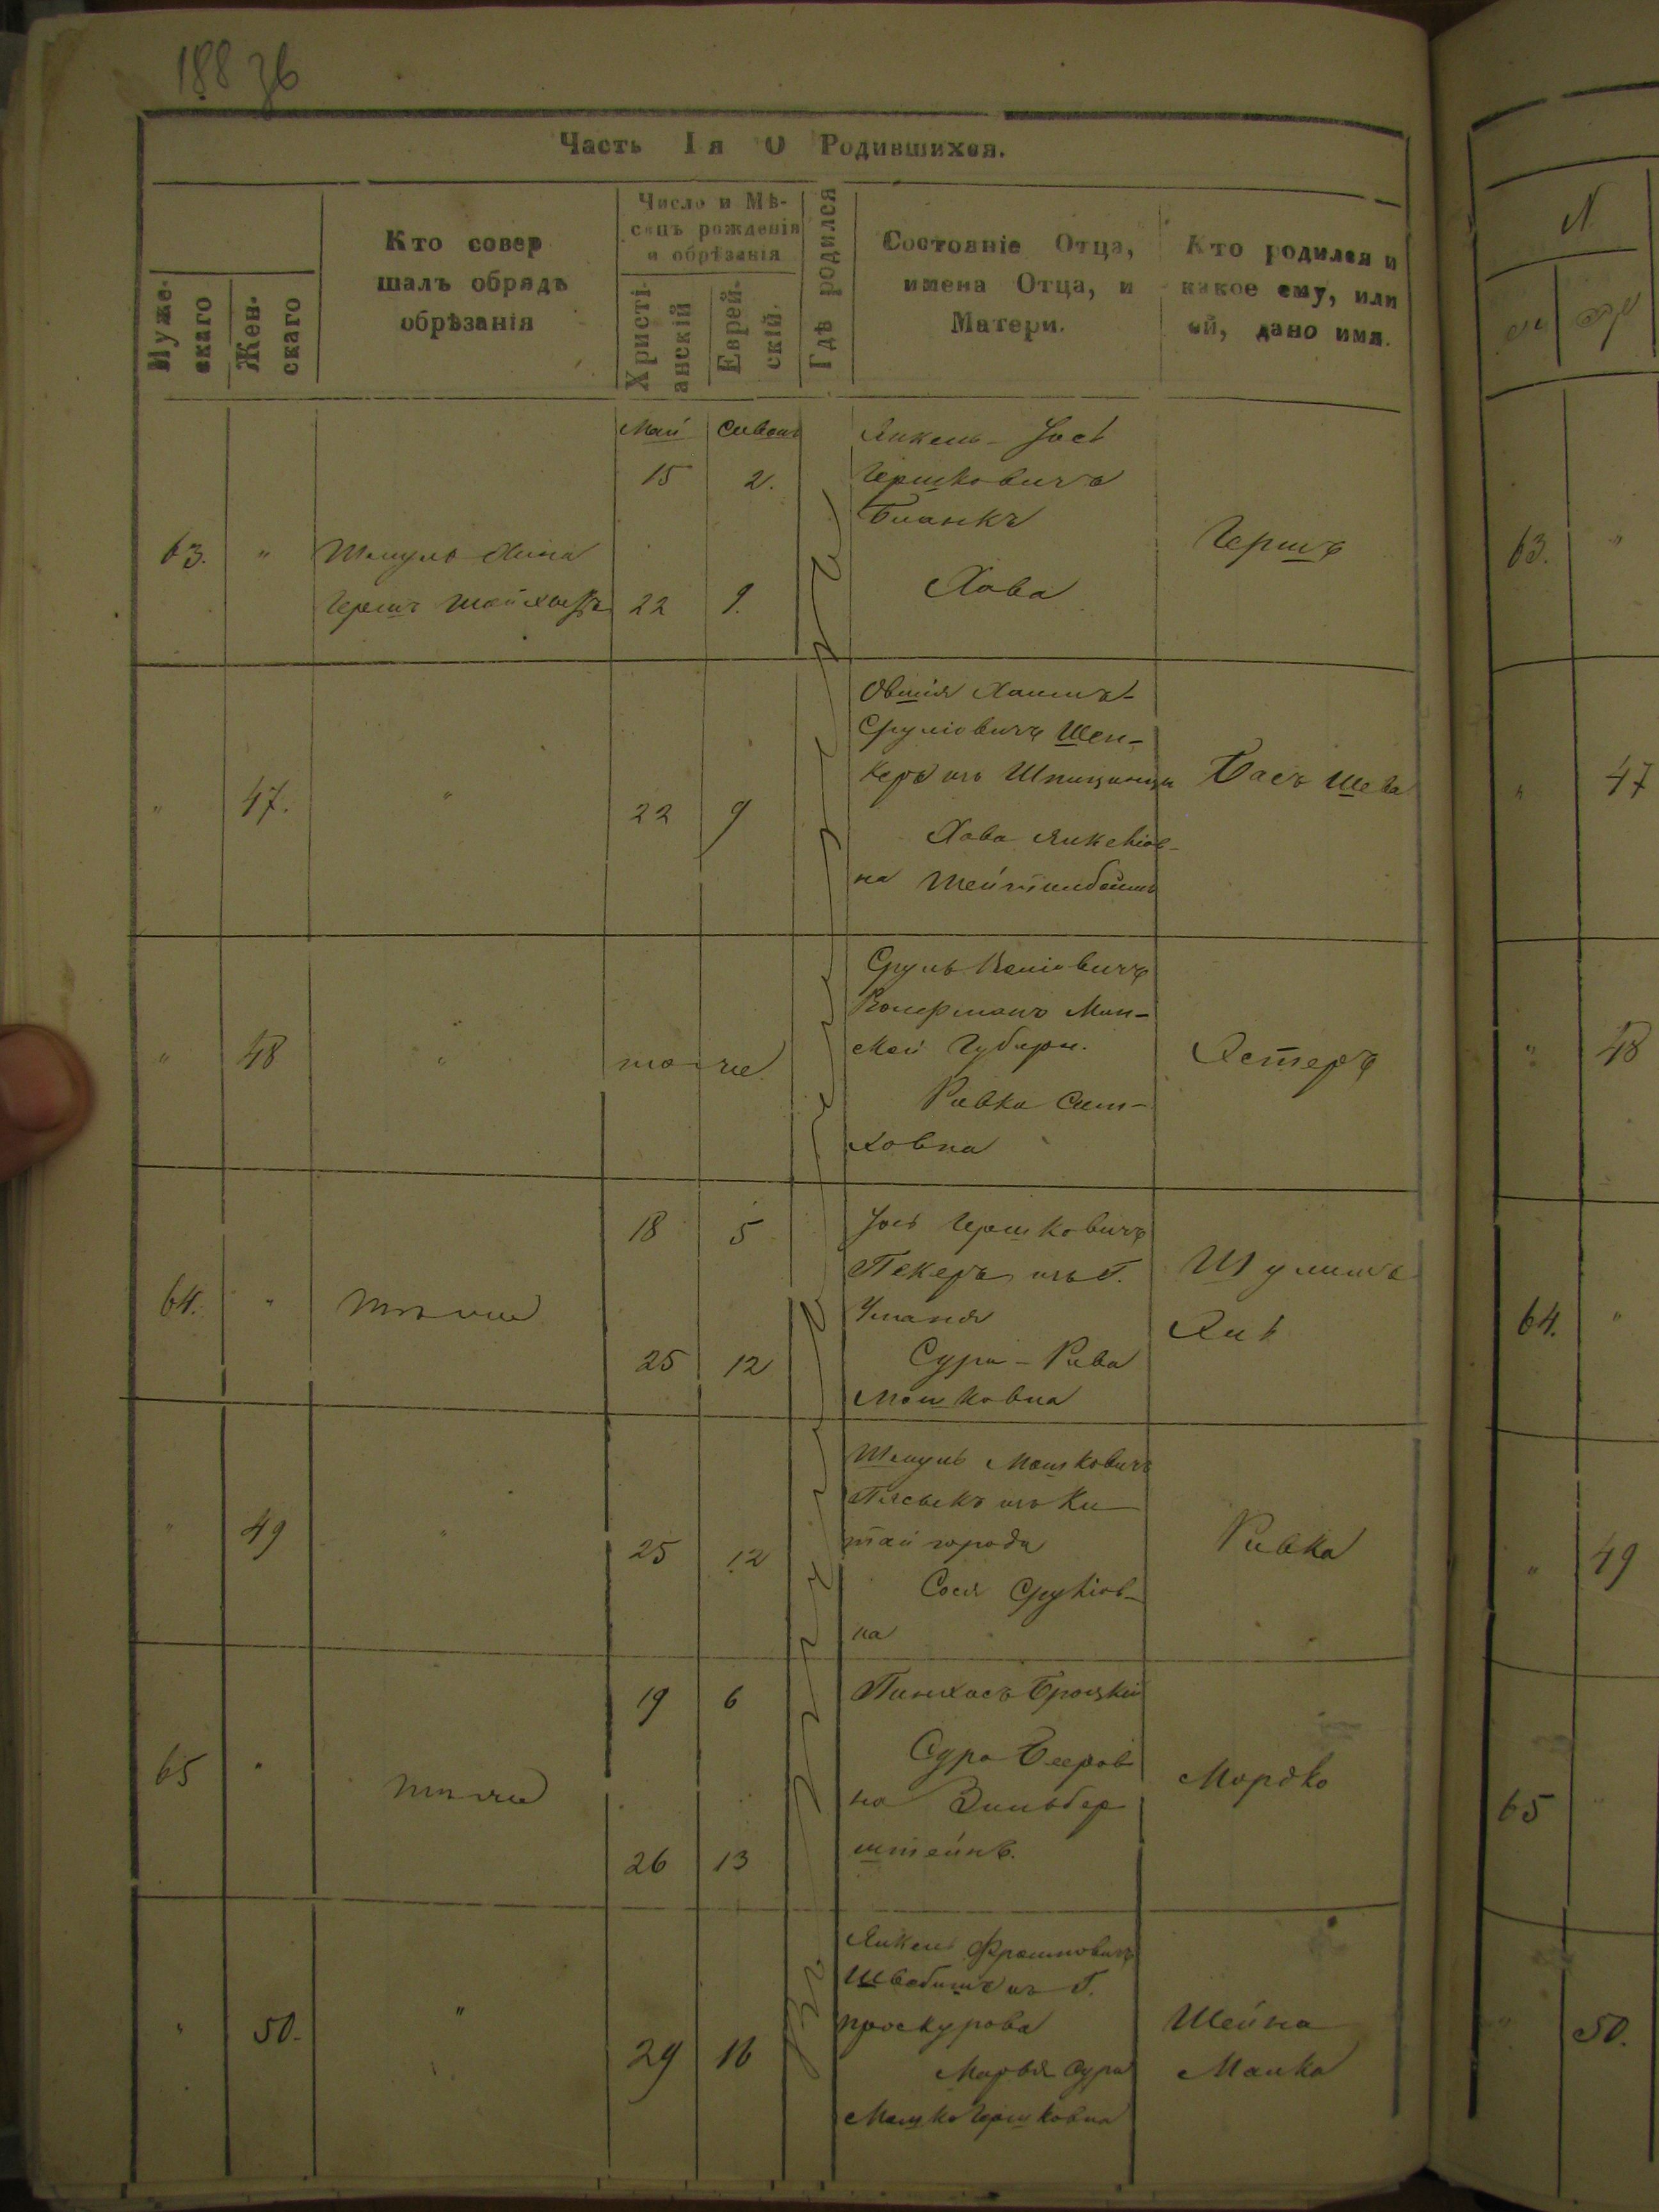 188 36
Часть Iя О Родившихся.
Мужескаго
Женскаго
Кто совер
шалъ обрядъ
обрѣзанія
Число и Мѣ-
сяцъ рожденія
и обрѣзанія
Христі-
анскій
Еврей-
скій.
Гдѣ родился
Состояніе Отца,
имена Отца, и
Матери.
Кто родился и
какое ему, или
ей, дано имя.
Май Сивонъ
15 2.
63. "
Шмуль
Гершъ
22 9.
Янкель-Іось
Гершковичъ
Бланкъ
Хава
Гершъ
" 47. "
22 9
Овшія Хаимъ
Сруліовичъ Шен-
керъ изъ
Хава Янкеліов-
на
Бася Шева
" 48 "
то-же
Сруль
Мин-
ской Губерн.
Ривка Сим-
ховна
Хестеръ
64. "
тотъ же
18 5
25 12
Іось Гершковичъ
Пекеръ изъ Г.
Уманя
Сура-Рива
Мошковна
Шулимъ
" 49 "
25 12
Шмуль Мошковичъ
изъ Ки
тай города
Сося Сруліов-
на
Ривка
65 "
тотъ же
19 6
26 13
Пинхасъ Броцкій
Сура Беров
на Зильбер
штейнъ.
Мордко
" 50. "
29 16
Янкель
изъ Г.
проскурова
Марья Сура
Мошко Гершковна
Шейна
Малка
N.
63. "
" 47
" 48
64. "
" 49
65 "
" 50.